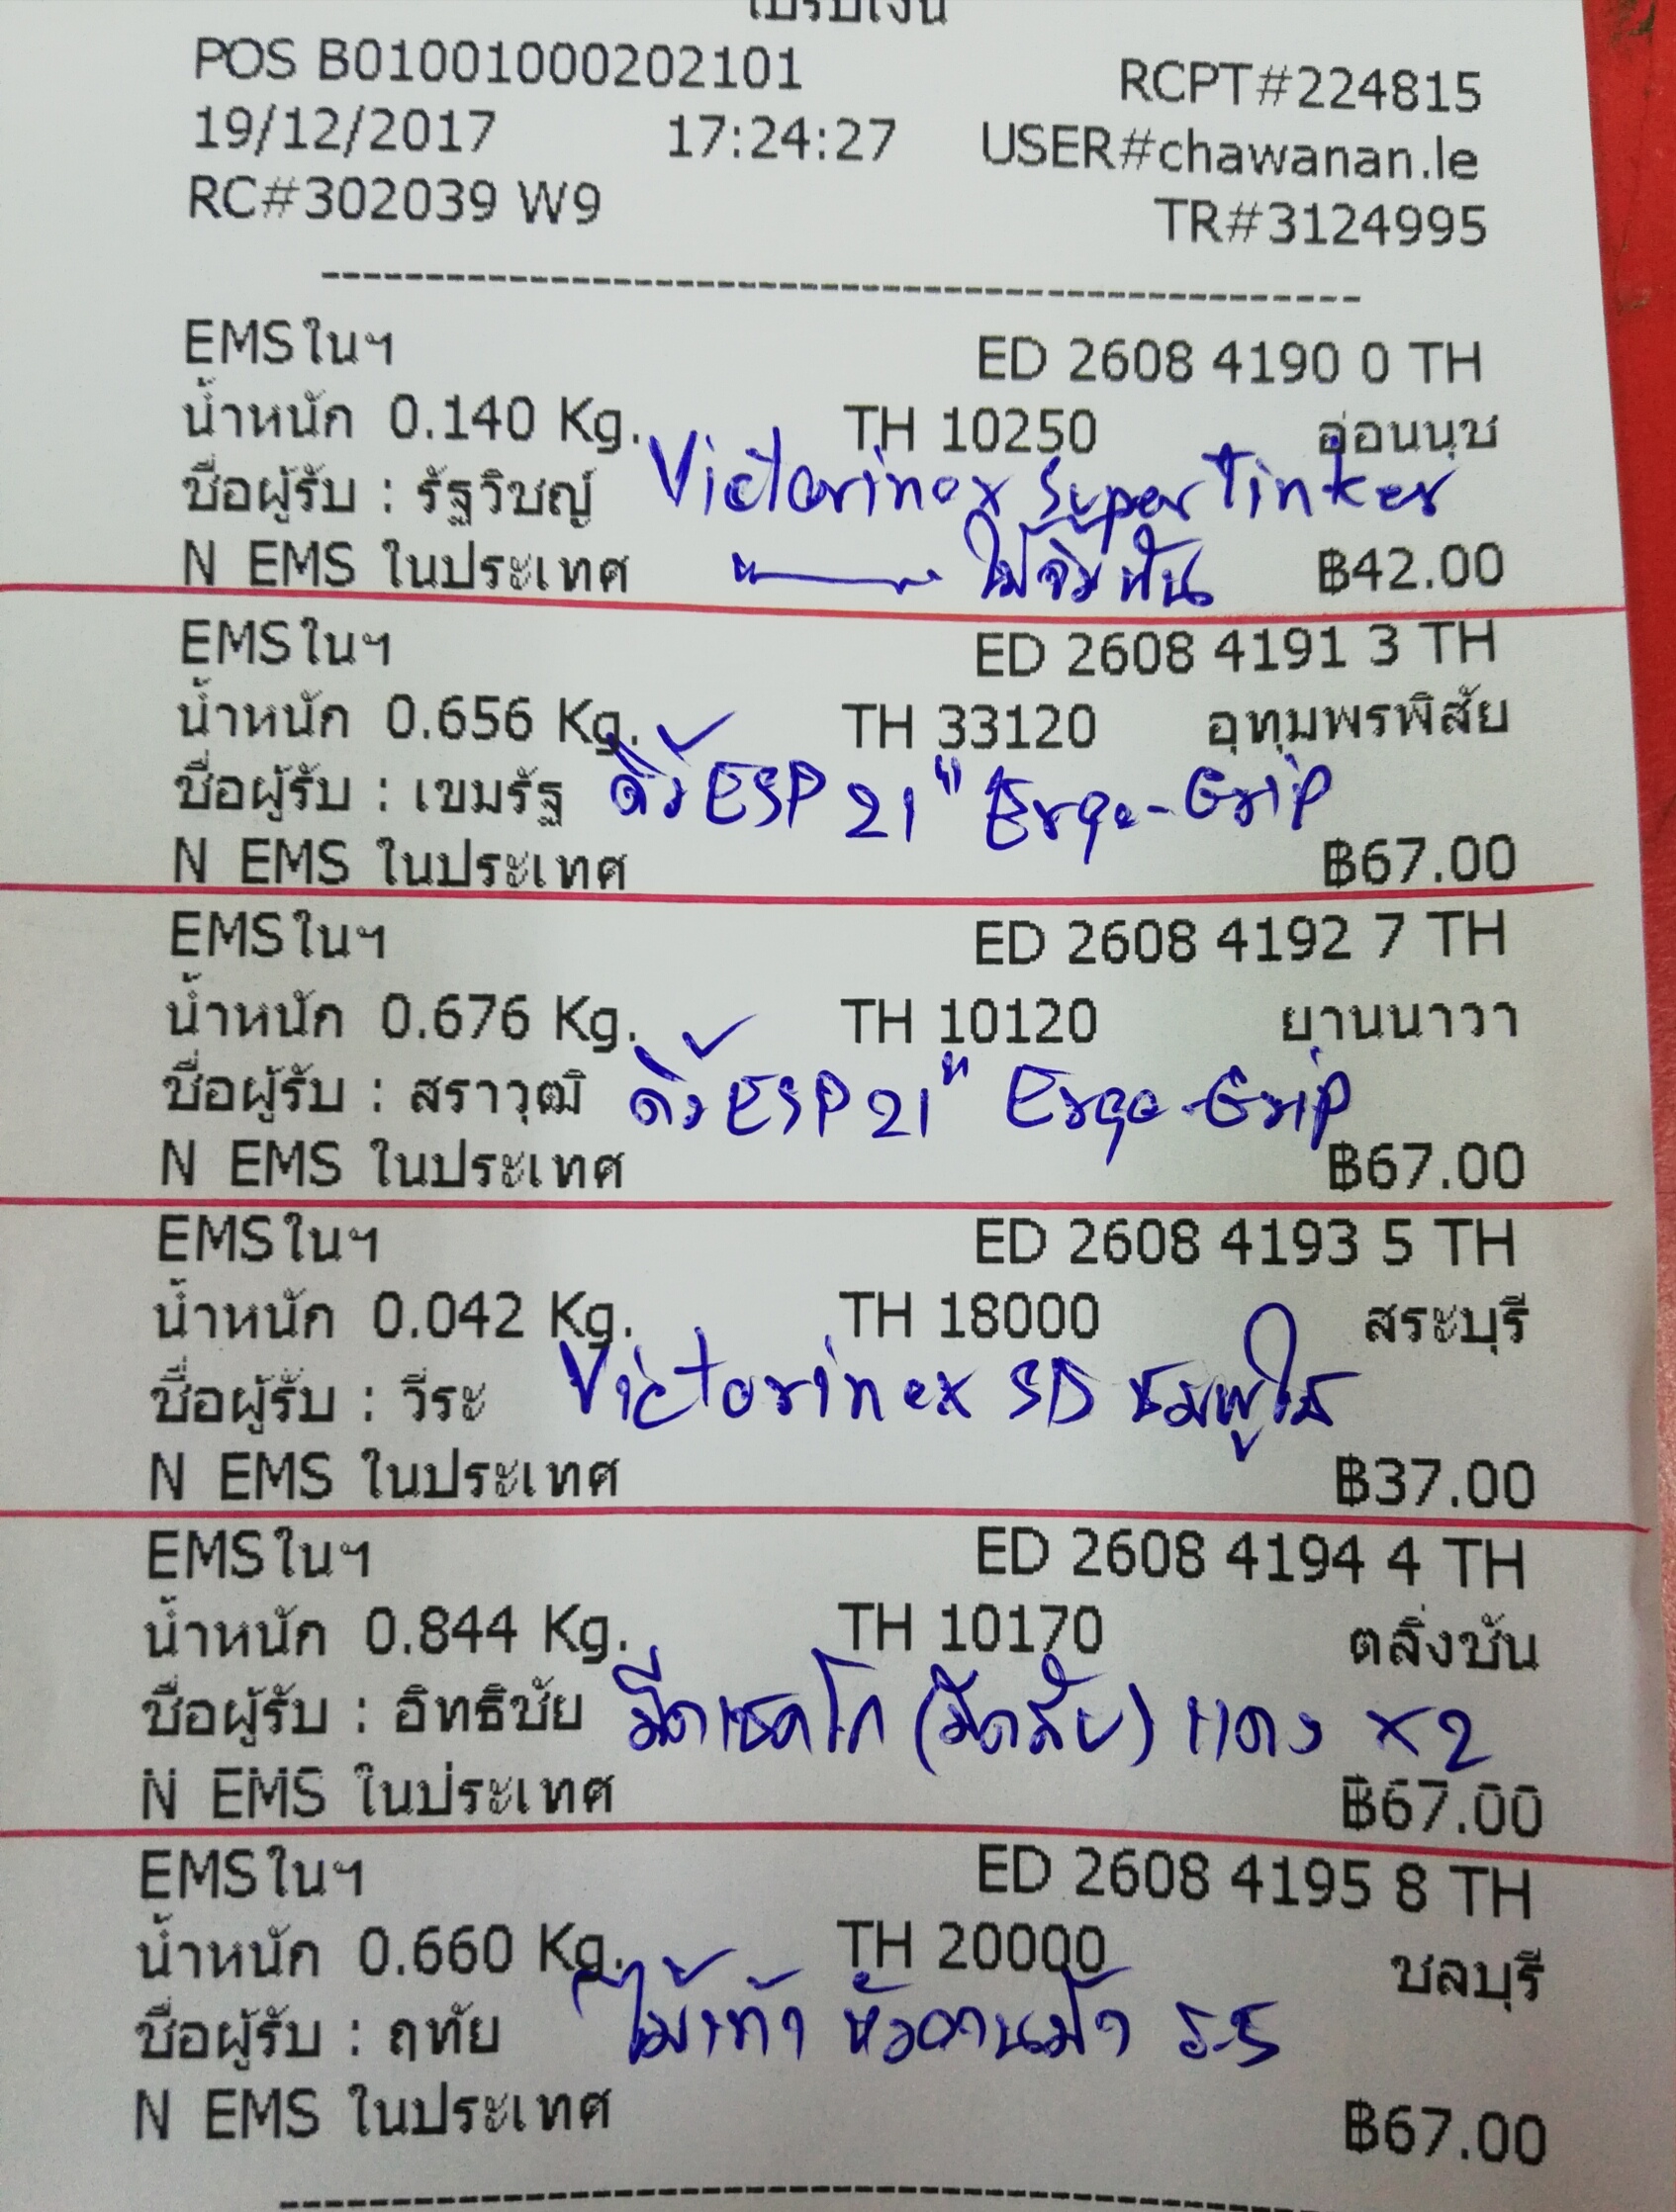 ใบรับเงิน
POS B01001000202101 RCPT#224815
19/12/2017 17:24:27 USER#chawanan.le
RC#302039 W9 TR#3124995
EMSในฯ ED 2608 4190 0 TH
น้ำหนัก 0.140 Kg. TH 10250 อ่อนนุช
ชื่อผู้รับ : รัฐวิชญ์ Victorinox Super Tinker
N EMS ในประเทศ ไม้จิ้มฟัน ฿42.00
EMSในฯ ED 2608 4191 3 TH
น้ำหนัก 0.656 Kg. TH 33120 อุทุมพรพิสัย
ชื่อผู้รับ : เขมรัฐ ดิ้ว ESP 21" Ergo-Grip
N EMS ในประเทศ ฿67.00
EMSในฯ ED 2608 4192 7 TH
น้ำหนัก 0.676 Kg. TH 10120 ยานนาวา
ชื่อผู้รับ : สราวุฒิ ดิ้ว ESP 21" Ergo-Grip
N EMS ในประเทศ ฿67.00
EMSในฯ ED 2608 4193 5 TH
น้ำหนัก 0.042 Kg. TH 18000 สระบุรี
ชื่อผู้รับ : วีระ Victorinox SD ชมพูใส
N EMS ในประเทศ ฿37.00
EMSในฯ ED 2608 4194 4 TH
น้ำหนัก 0.844 Kg. TH 10170 ตลิ่งชัน
ชื่อผู้รับ : อิทธิชัย มีดเชคโก (มีดสับ) แดง x2
N EMS ในประเทศ ฿67.00
EMSในฯ ED 2608 4195 8 TH
น้ำหนัก 0.660 Kg. TH 20000 ชลบุรี
ชื่อผู้รับ : ฤทัย ไม้เท้า หัวอานม้า
N EMS ในประเทศ ฿67.00